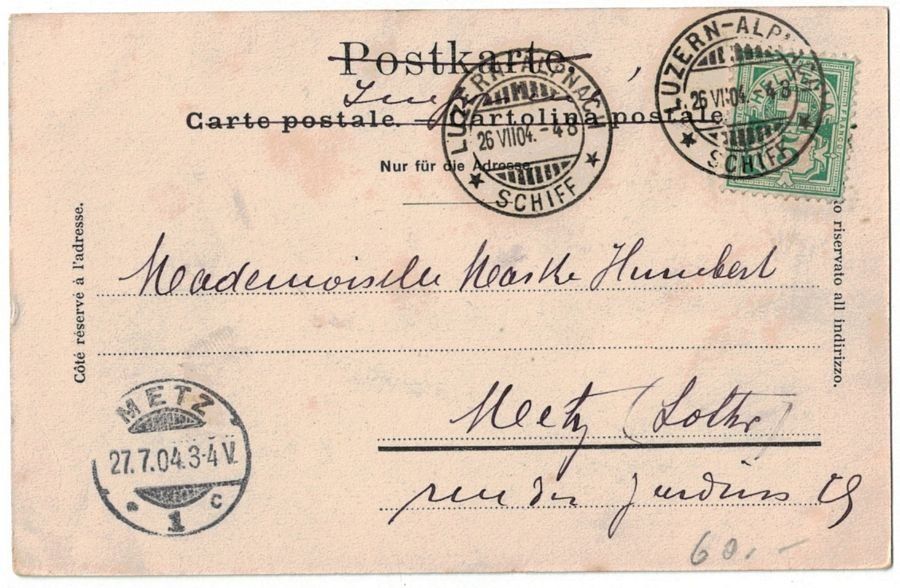 Postkarte
Carte postale. – Cartolina postale.
Nur für die Adresse.
LUZERN-ALPNACH
26 VII 04. – 4 8
SCHIFF
LUZERN-ALPNACH
26 VII 04. – 4 8
SCHIFF
HELVETIA
Côté réservé à l'adresse.
riservato all indirizzo.
Mademoiselle Marthe Humbert
Metz (Lothr)
rue des jardins
METZ
27.7.04.3-4 V.
* 1 c
60.-